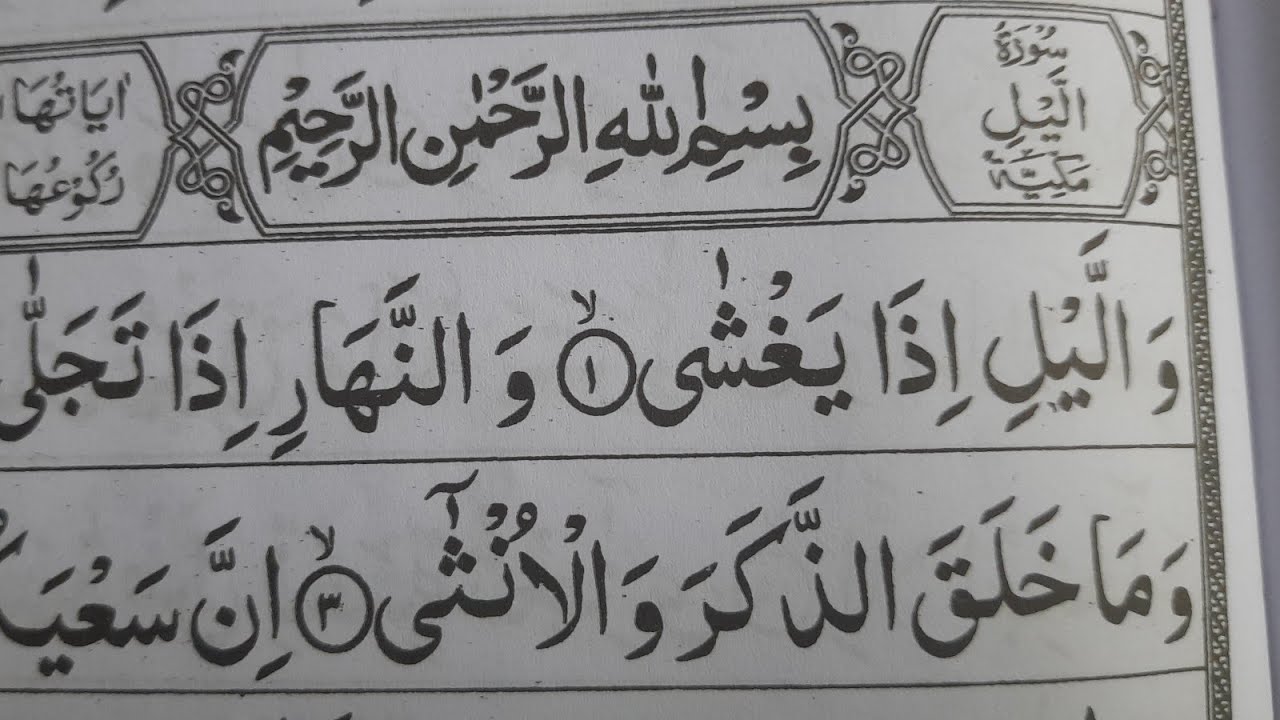 سُوْرَةُ
الَّيْلِ
مَكِّيَّةٌ
بِسْمِ اللّٰهِ الرَّحْمٰنِ الرَّحِيْمِ
اٰيَاتُهَا
رُكُوْعُهَا
وَ الَّيْلِ اِذَا يَغْشٰى ۙ﴿۱﴾ وَ النَّهَارِ اِذَا تَجَلّٰى
وَ مَا خَلَقَ الذَّكَرَ وَ الْاُنْثٰۤى ۙ﴿۳﴾ اِنَّ